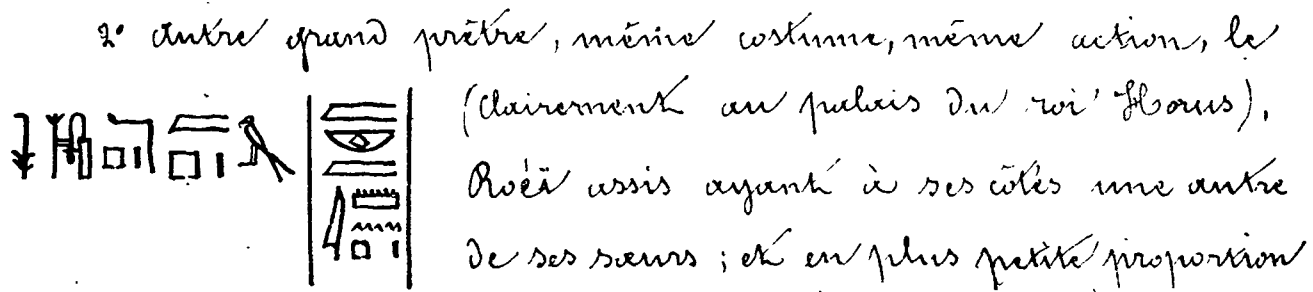 2° Autre grand prêtre, même costume, même action, le
(clairement au palais du roi Horus),
Roéï assis ayant à ses côtés une autre
de ses sœurs ; et en plus petite proportion